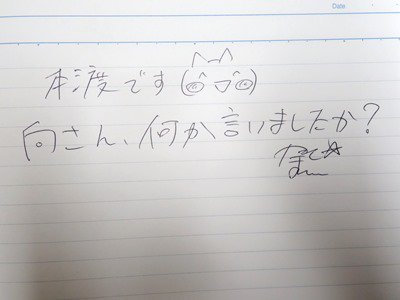 Date
本渡です
向さん、何か言いましたか?